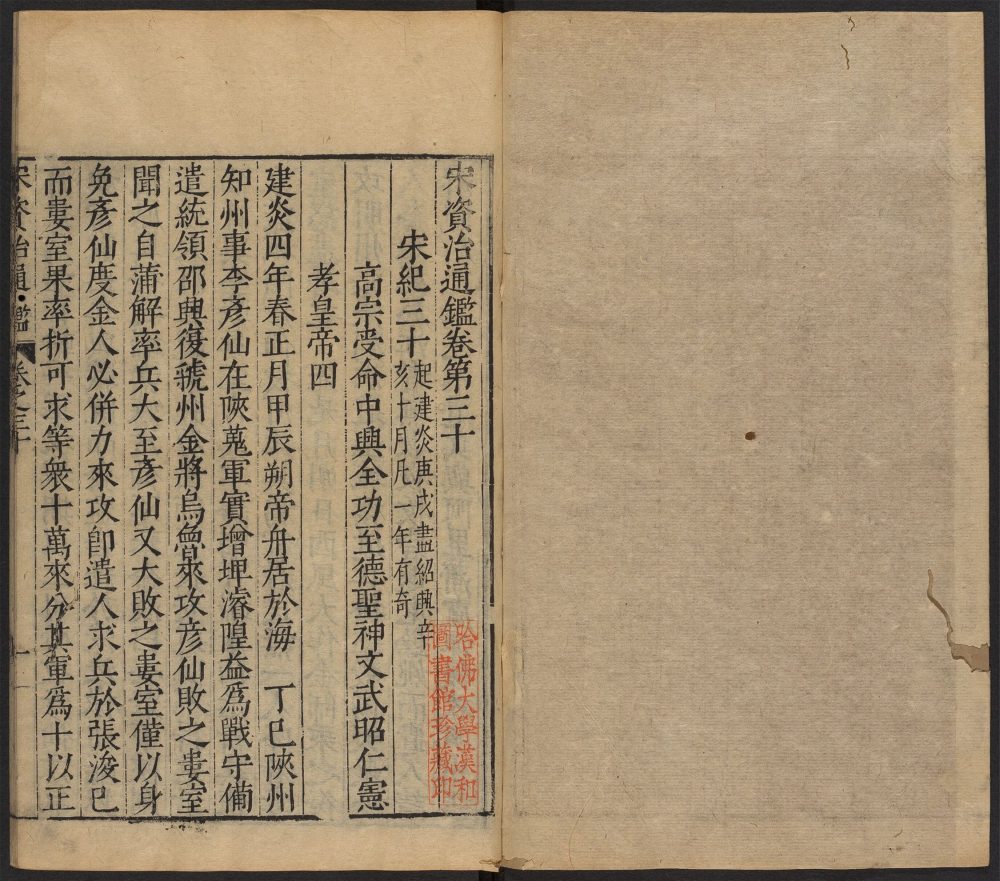 宋資治通鑑卷第三十
宋紀三十
起建炎庚戌盡紹興辛
亥十月凡一年有奇
高宗受命中興全功至德聖神文武昭仁憲
孝皇帝四
建炎四年春正月甲辰朔帝舟居於海 丁巳陝州
知州事李彥仙在陝蒐軍實增埤濬隍益爲戰守備
遣統領邵興復虢州金將烏魯來攻彥仙敗之婁室
聞之自蒲解率兵大至彥仙又大敗之婁室僅以身
免彥仙度金人必併力來攻卽遣人求兵於張浚巳
而婁室果率折可求等衆十萬來分其軍爲十以正
宋資治通鑑 卷之三十
一
哈佛大學漢和
圖書館珍藏印